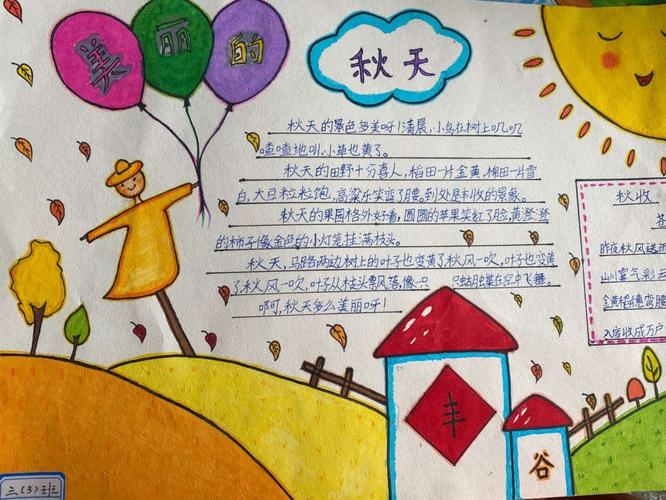 美丽的
秋天
秋天的景色多美呀！清晨，小鸟在树上叽叽
喳喳地叫，小草也黄了。
秋天的田野十分喜人，稻田一片金黄，棉田一片雪
白，大豆粒粒饱，高粱乐笑弯了腰，到处是丰收的景象。
秋天的果园格外好看，圆圆的苹果笑红了脸，黄澄澄
的柿子像金色的小灯笼挂满枝头。
秋天，马路两边树上的叶子也变黄了，秋风一吹，叶子也变黄
了，秋风一吹，叶子从枝头飘风落，像一只 只蝴蝶在空中飞舞。
啊呵，秋天多么美丽呀！
秋收
昨夜秋风送
山川雾气彩云
金黄稻穗弯腰
入房收成万户
丰
谷
三(3)班